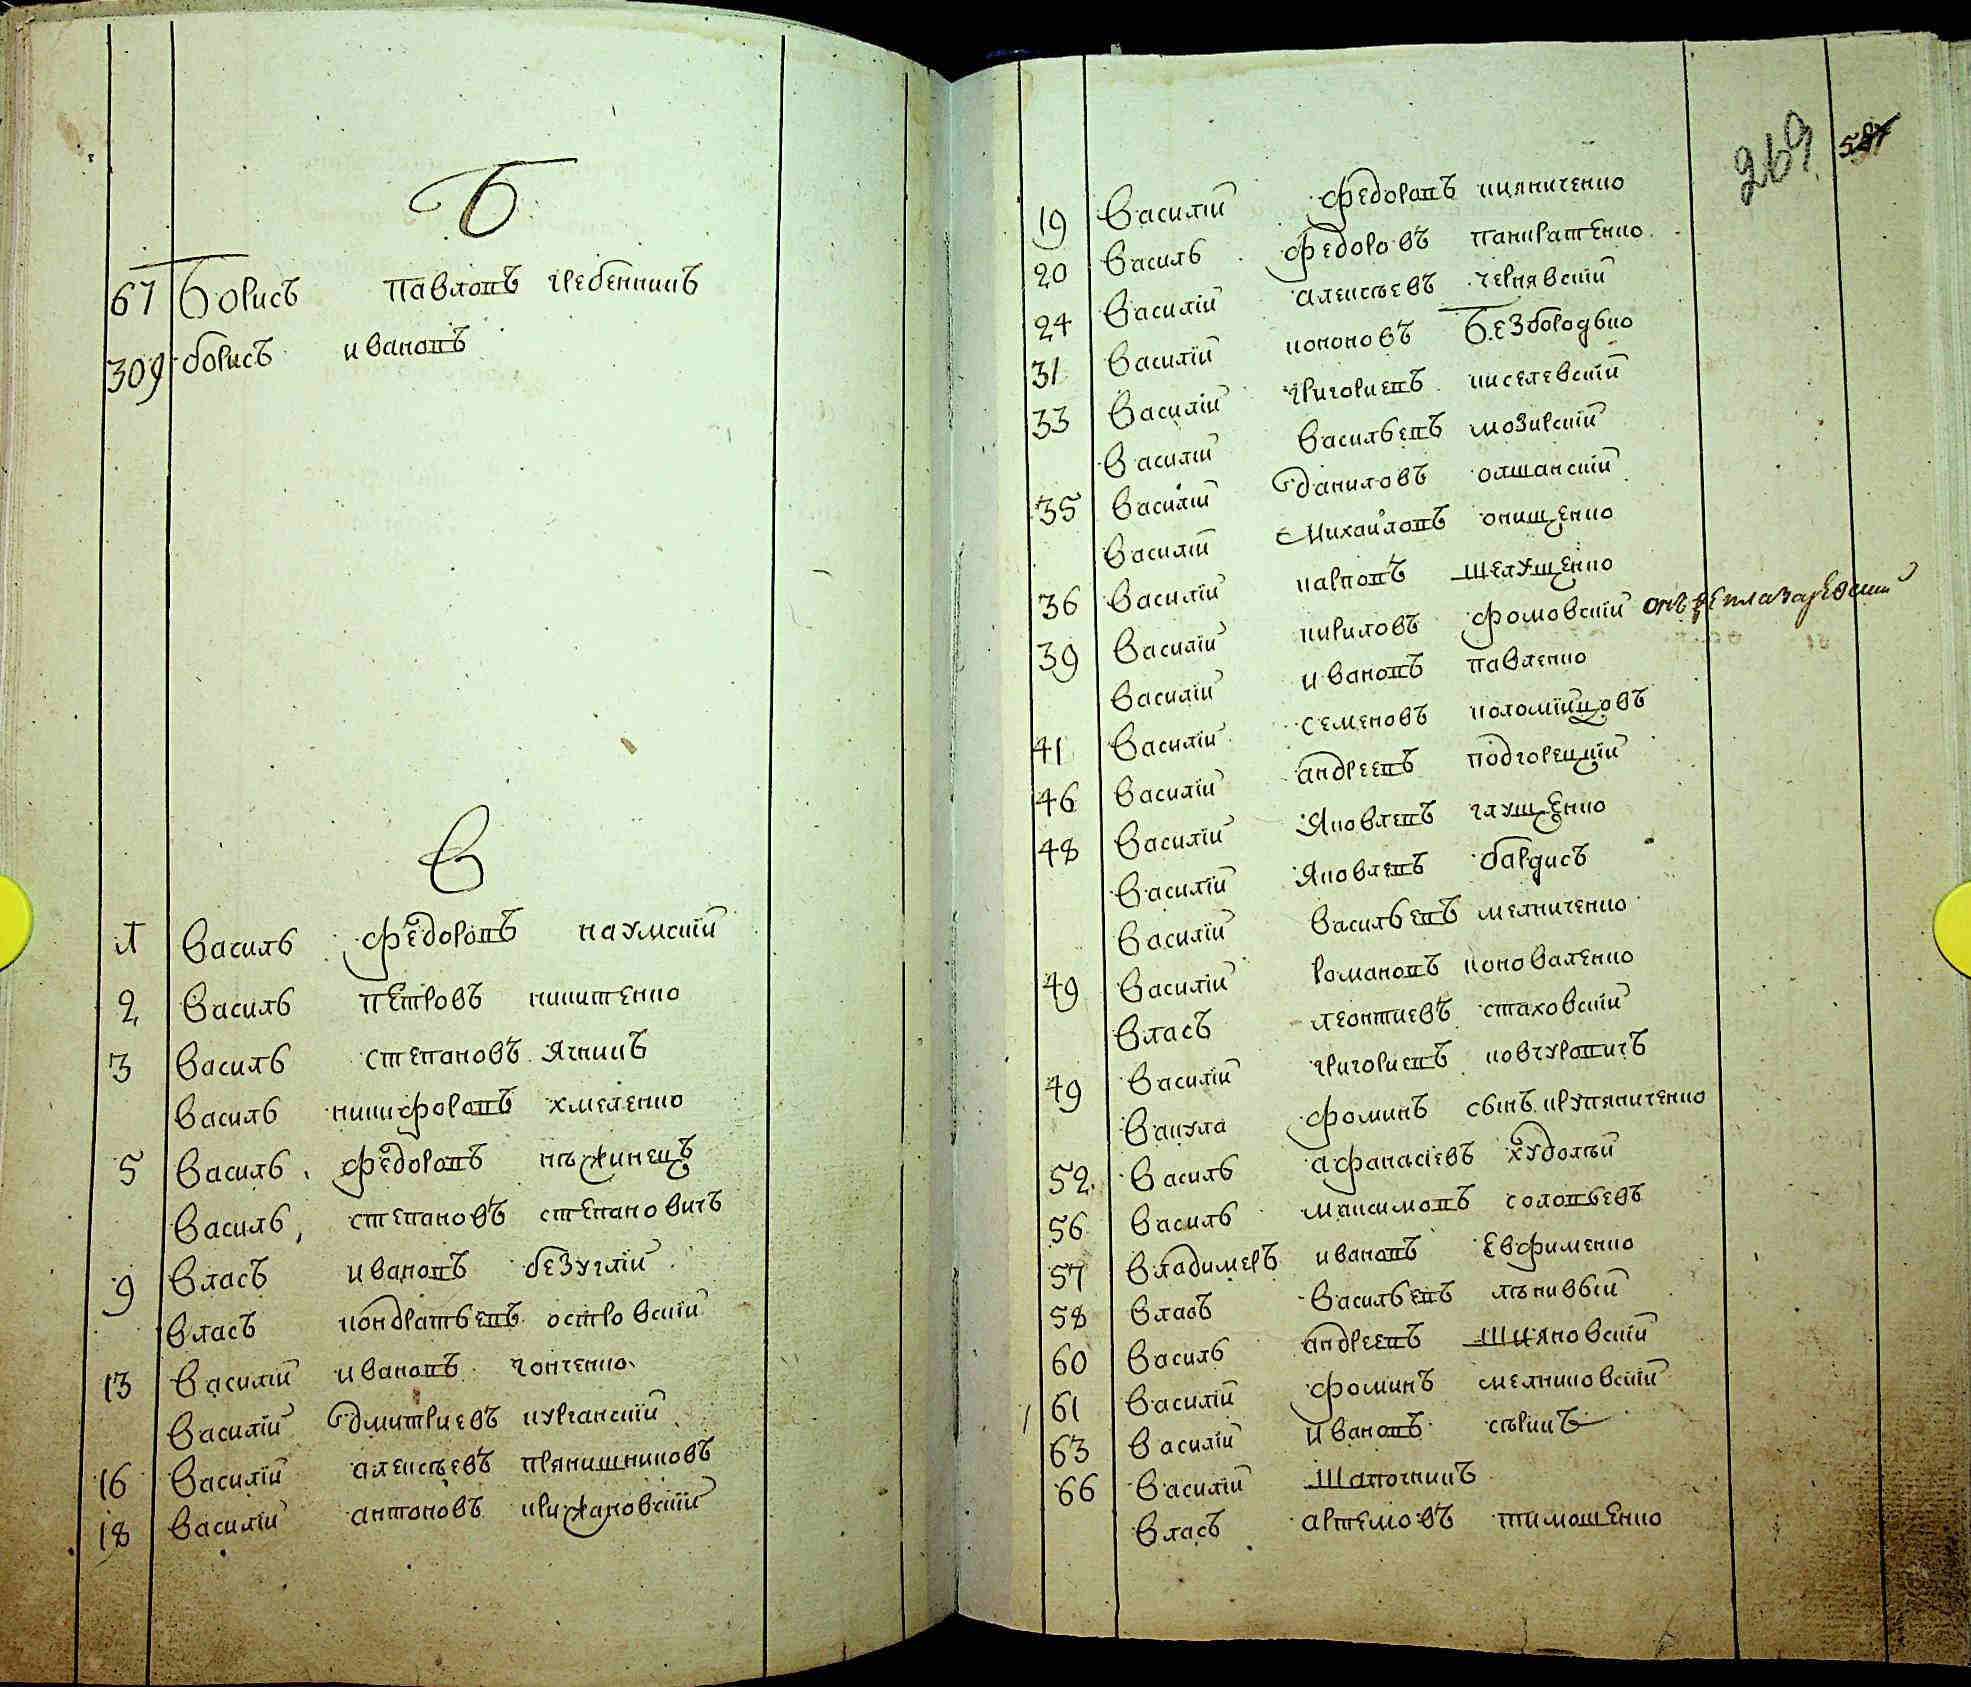 Б
67 Борисъ Павловъ гребенникъ
309 борисъ ивановъ
В
1 Василь федоровъ наумскїй
2 Василь петровъ никитенко
3 Василь степановъ Ячникъ
Василь никифоровъ хмеленко
5 Василь федоровъ нѣжинецъ
Василь степановъ степановичъ
9 Власъ ивановъ безуглїй
Власъ кондратьевъ островскїй
13 Василїй ивановъ гонченко
Василїй дмитриевъ курганскїй
16 Василїй алексѣевъ прянишниковъ
18 Василїй антоновъ крижановскїй
269 587
19 Василїй федоровъ кияниченко
20 Василь федоровъ панкратенко
24 Василїй алексѣевъ чернявскїй
31 Василїй кононовъ Безбородько
33 Василїй григориевъ киселевскїй
Василїй Васильевъ мозирскїй
35 Василїй даниловъ олшанскїй
Василїй михаиловъ онищенко
36 Василїй карповъ шелущенко
39 Василїй кириловъ фомовскїй онъ же
Василїй ивановъ павленко
41 Василїй семеновъ коломїйцовъ
46 Василїй андреевъ подгорецкїй
48 Василїй Яковлевъ глущенко
Василїй Яковлевъ бардисъ
Василїй Васильевъ мелниченко
49 Василїй романовъ коноваленко
Власъ леонтиевъ стаховскїй
49 Василїй григориевъ ковчуровичъ
Вакула фоминъ сынъ крупяниченко
52 Василь афанасїевъ худолѣй
56 Василь максимовъ соловьевъ
57 Владимеръ ивановъ Евфименко
58 Власъ Васильевъ лѣнивый
60 Василь андреевъ шияновскїй
61 Василїй фоминъ мелниковскїй
63 Василїй ивановъ сѣрикъ
66 Василїй Шапочникъ
Власъ артемовъ тимошенко